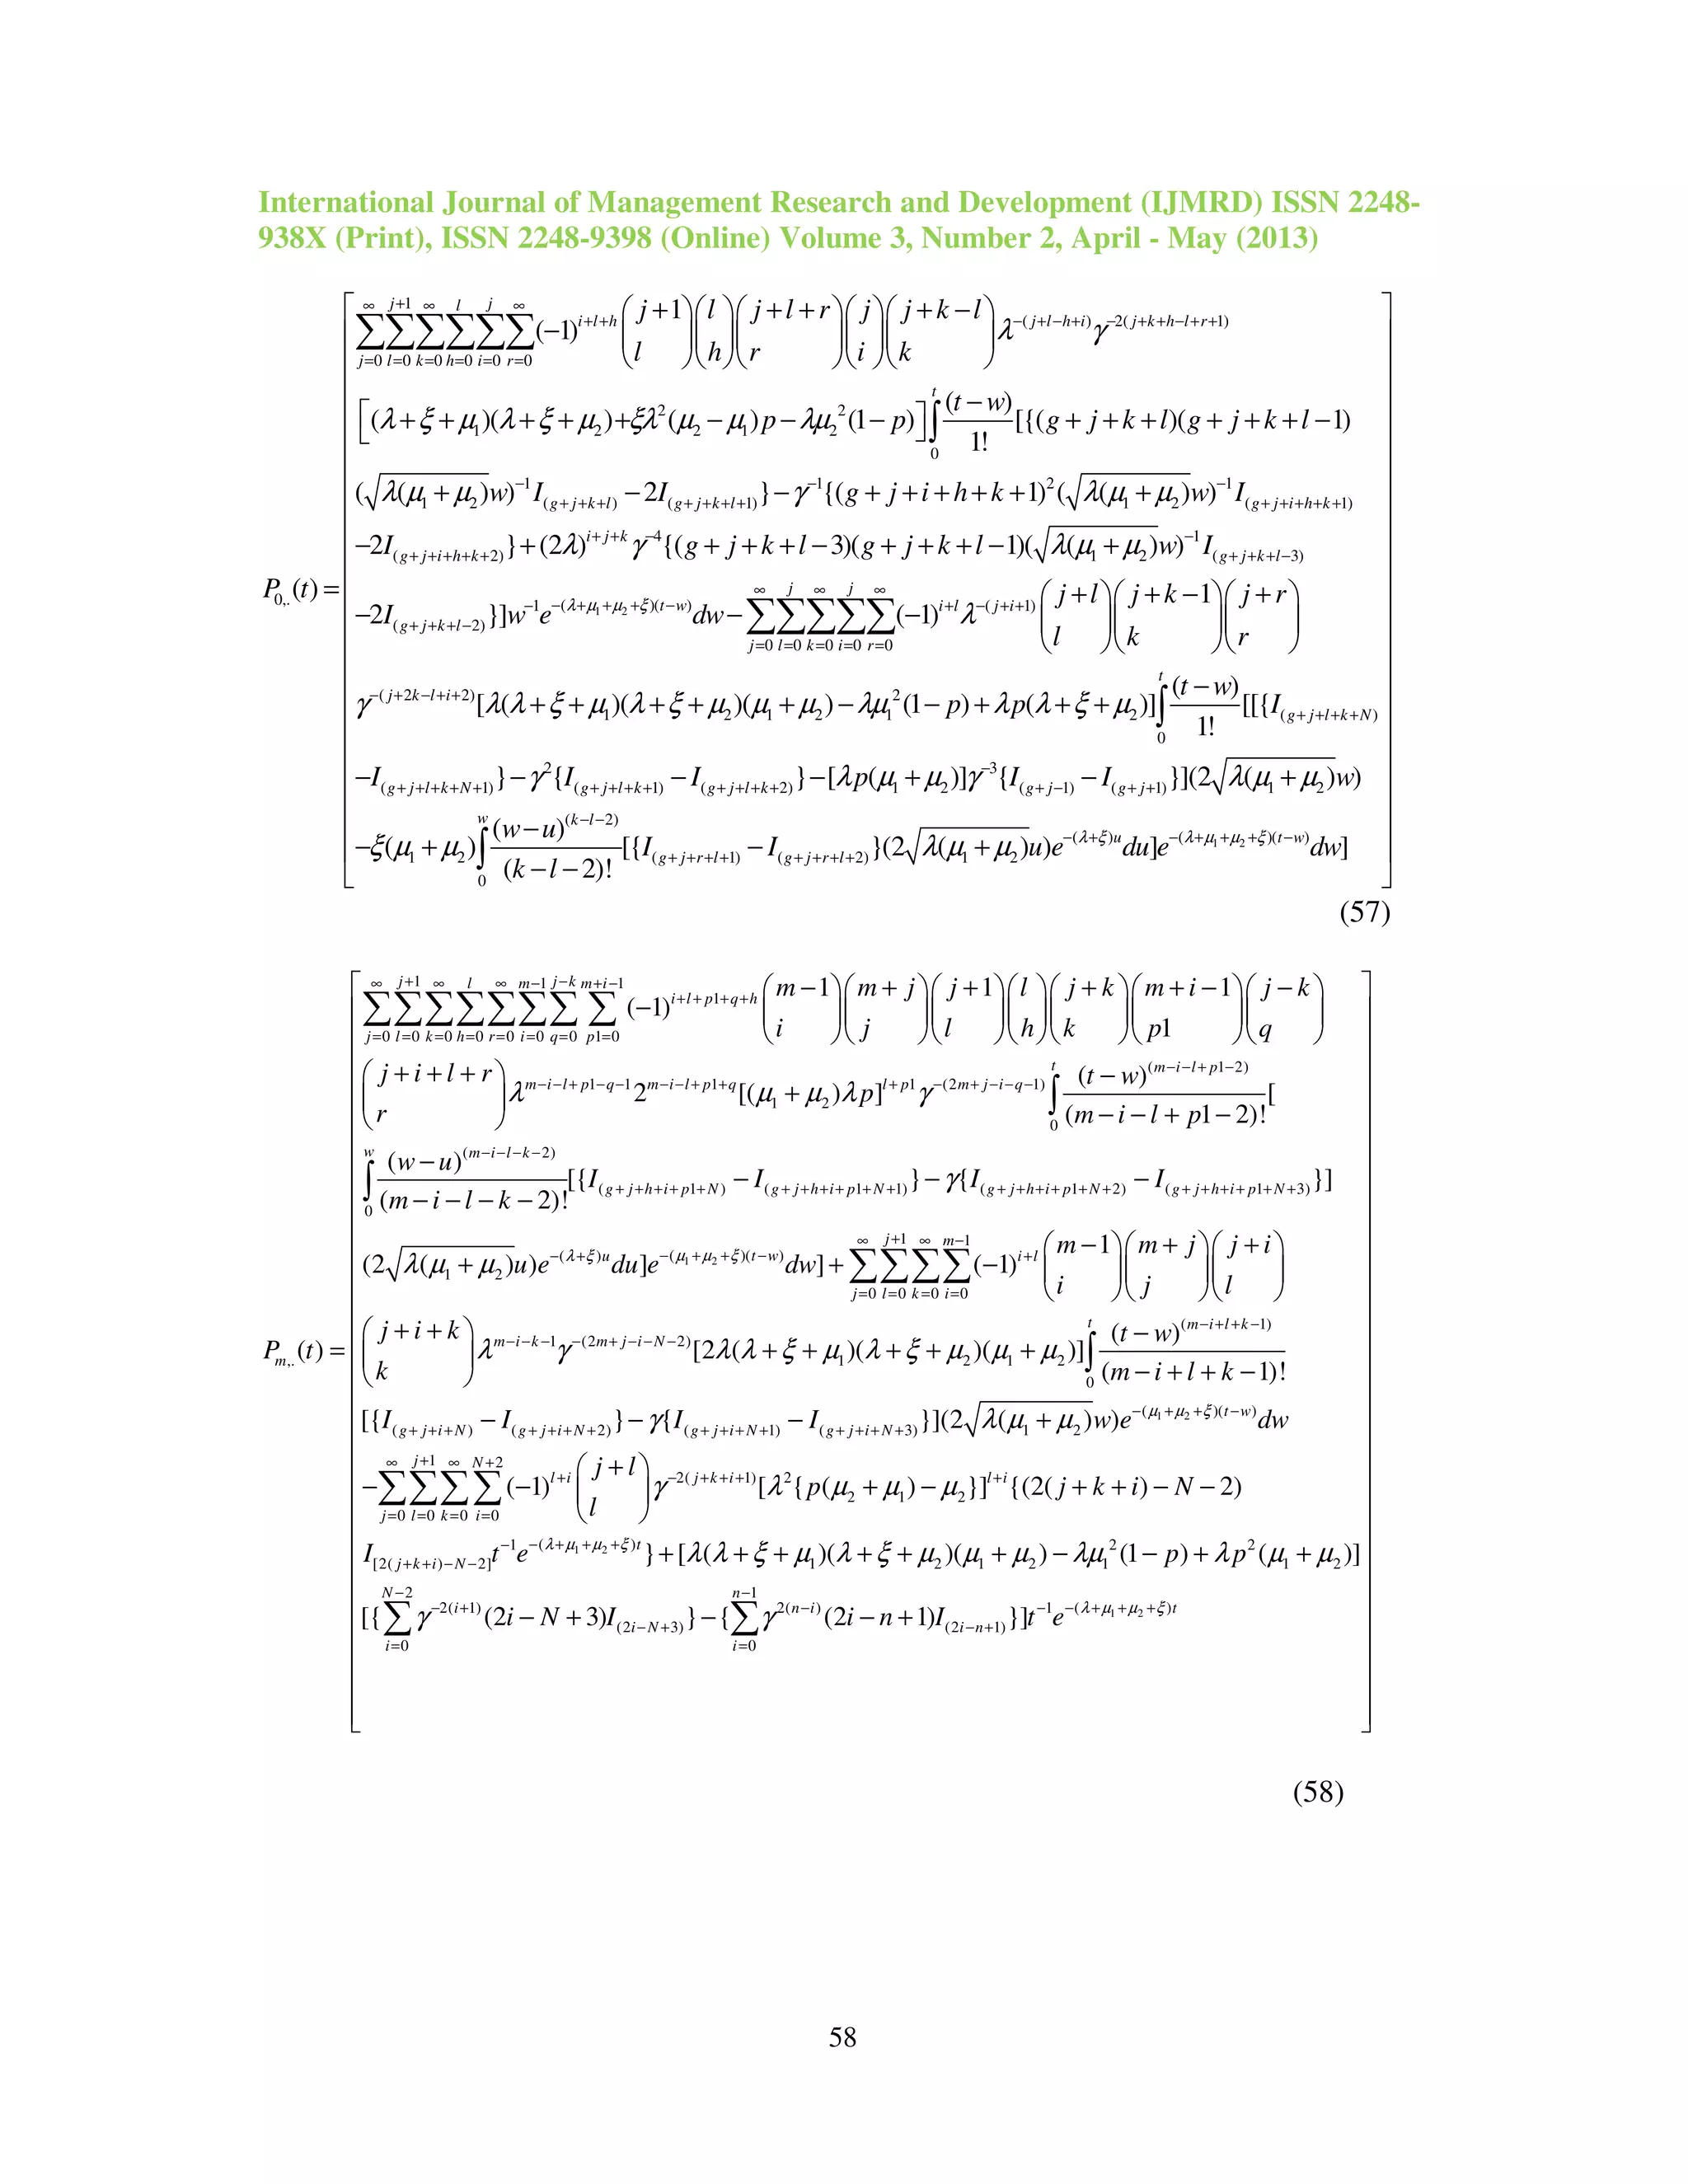 International Journal of Management Research and Development (IJMRD) ISSN 2248-
938X (Print), ISSN 2248-9398 (Online) Volume 3, Number 2, April - May (2013)
P_{0,.}(t) = [ \sum_{j=0}^{∞} \sum_{l=0}^{j+1} \sum_{k=0}^{∞} \sum_{h=0}^{l} \sum_{i=0}^{j} \sum_{r=0}^{∞} (-1)^{i+l+h} \binom{j+1}{l} \binom{l}{h} \binom{j+l+r}{r} \binom{j}{i} \binom{j+k-l}{k} λ^{-(j+l-h+i)} γ^{-2(j+k+h-l+r+1)}
[(λ+ξ+μ_1)(λ+ξ+μ_2)+ξλ^2(μ_2-μ_1)p-λμ_2^2(1-p)] \int_0^t \frac{(t-w)}{1!} [{(g+j+k+l)(g+j+k+l-1)
(\sqrt{λ(μ_1+μ_2)}w)^{-1} I_{(g+j+k+l)} -2I_{(g+j+k+l+1)}} -γ^{-1}{(g+j+i+h+k+1)^2(\sqrt{λ(μ_1+μ_2)}w)^{-1} I_{(g+j+i+h+k+1)}
-2I_{(g+j+i+h+k+2)}} +(2λ)^{i+j+k} γ^{-4}{(g+j+k+l-3)(g+j+k+l-1)(\sqrt{λ(μ_1+μ_2)}w)^{-1} I_{(g+j+k+l-3)}
-2I_{(g+j+k+l-2)}}]w^{-1}e^{-(λ+μ_1+μ_2+ξ)(t-w)}dw - \sum_{j=0}^{∞} \sum_{l=0}^{j} \sum_{k=0}^{∞} \sum_{i=0}^{j} \sum_{r=0}^{∞} (-1)^{i+l} λ^{-(j+i+1)} \binom{j+l}{l} \binom{j+k-1}{k} \binom{j+r}{r}
γ^{-(j+2k-l+i+2)}[λ(λ+ξ+μ_1)(λ+ξ+μ_2)(μ_1+μ_2)-λμ_1^2(1-p)+λp(λ+ξ+μ_2)] \int_0^t \frac{(t-w)}{1!} [[{I_{(g+j+l+k+N)}
-I_{(g+j+l+k+N+1)}} -γ^2{I_{(g+j+l+k+1)} -I_{(g+j+l+k+2)}} -[λp(μ_1+μ_2)]γ^{-3}{I_{(g+j-1)} -I_{(g+j+1)}}](2\sqrt{λ(μ_1+μ_2)}w)
-ξ(μ_1+μ_2) \int_0^w \frac{(w-u)^{(k-l-2)}}{(k-l-2)!} [{I_{(g+j+r+l+1)} -I_{(g+j+r+l+2)}}(2\sqrt{λ(μ_1+μ_2)}u)e^{-(λ+ξ)u}du]e^{-(λ+μ_1+μ_2+ξ)(t-w)}dw] ]
(57)
P_{m,.}(t) = [ \sum_{j=0}^{∞} \sum_{l=0}^{j+1} \sum_{k=0}^{∞} \sum_{h=0}^{l} \sum_{r=0}^{∞} \sum_{i=0}^{m-1} \sum_{q=0}^{j-k} \sum_{p1=0}^{m+i-1} (-1)^{i+l+p1+q+h} \binom{m-1}{i} \binom{m+j}{j} \binom{j+1}{l} \binom{l}{h} \binom{j+k}{k} \binom{m+i-1}{p1} \binom{j-k}{q}
\binom{j+i+l+r}{r} λ^{m-i-l+p1-q-1} 2^{m-i-l+p1+q} [(μ_1+μ_2)λp]^{l+p1} γ^{-(2m+j-i-q-1)} \int_0^t \frac{(t-w)^{(m-i-l+p1-2)}}{(m-i-l+p1-2)!} [
\int_0^w \frac{(w-u)^{(m-i-l-k-2)}}{(m-i-l-k-2)!} [{I_{(g+j+h+i+p1+N)} -I_{(g+j+h+i+p1+N+1)}} -γ{I_{(g+j+h+i+p1+N+2)} -I_{(g+j+h+i+p1+N+3)}}]
(2\sqrt{λ(μ_1+μ_2)}u)e^{-(λ+ξ)u}du]e^{-(μ_1+μ_2+ξ)(t-w)}dw] + \sum_{j=0}^{∞} \sum_{l=0}^{j+1} \sum_{k=0}^{∞} \sum_{i=0}^{m-1} (-1)^{i+l} \binom{m-1}{i} \binom{m+j}{j} \binom{j+i}{l}
\binom{j+i+k}{k} λ^{m-i-k-1} γ^{-(2m+j-i-N-2)} [2λ(λ+ξ+μ_1)(λ+ξ+μ_2)(μ_1+μ_2)] \int_0^t \frac{(t-w)^{(m-i+l+k-1)}}{(m-i+l+k-1)!}
[{I_{(g+j+i+N)} -I_{(g+j+i+N+2)}} -γ{I_{(g+j+i+N+1)} -I_{(g+j+i+N+3)}}](2\sqrt{λ(μ_1+μ_2)}w)e^{-(μ_1+μ_2+ξ)(t-w)}dw
-\sum_{j=0}^{∞} \sum_{l=0}^{j+1} \sum_{k=0}^{∞} \sum_{i=0}^{N+2} (-1)^{l+i} \binom{j+l}{l} γ^{-2(j+k+i+1)} [λ^2{p(μ_2+μ_1)-μ_2}]^{l+i} {(2(j+k+i)-N-2)
I_{[2(j+k+i)-N-2]} t^{-1}e^{-(λ+μ_1+μ_2+ξ)t}} +[λ(λ+ξ+μ_1)(λ+ξ+μ_2)(μ_1+μ_2)-λμ_1^2(1-p)+λp^2(μ_1+μ_2)]
[{\sum_{i=0}^{N-2} γ^{-2(i+1)}(2i-N+3)I_{(2i-N+3)}} -{\sum_{i=0}^{n-1} γ^{2(n-i)}(2i-n+1)I_{(2i-n+1)}}]t^{-1}e^{-(λ+μ_1+μ_2+ξ)t} ]
(58)
58